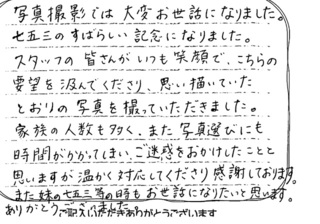 写真撮影では大変お世話になりました。
七五三のすばらしい記念になりました。
スタッフの皆さんがいつも笑顔で、こちらの
要望を汲んでくださり、思い描いていた
とおりの写真を撮っていただきました。
家族の人数も多く、また写真選びにも
時間がかかってしまい、ご迷惑をおかけしたことと
思いますが温かく対応してくださり感謝しております。
また妹の七五三等の時もお世話になりたいと思います。
ありがとうございました。
ご記入いただきありがとうございます